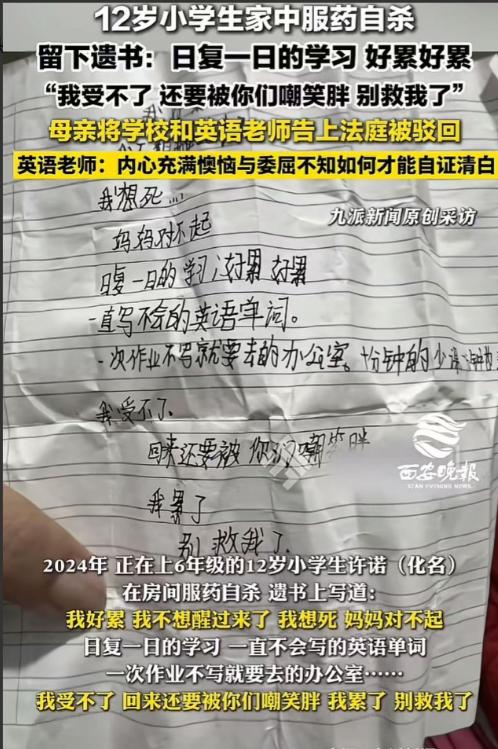 12岁小学生家中服药自杀
留下遗书：日复一日的学习 好累好累
“我受不了 还要被你们嘲笑胖 别救我了”
母亲将学校和英语老师告上法庭被驳回
英语老师：内心充满懊恼与委屈不知如何才能自证清白
九派新闻原创采访
我想死...
妈妈对不起
日复一日的学习，好累 好累
一直写不会的英语单词。
一次作业不写就要去的办公室。十分钟的少课
我受不了
回来还要被 你们嘲笑胖
西安晚报
XI'AN EVENING NEWS
我累了
别救我了
2024年 正在上6年级的12岁小学生许诺（化名）
在房间服药自杀 遗书上写道：
我好累 我不想醒过来了 我想死 妈妈对不起
日复一日的学习 一直不会写的英语单词
一次作业不写就要去的办公室……
我受不了 回来还要被你们嘲笑胖 我累了 别救我了